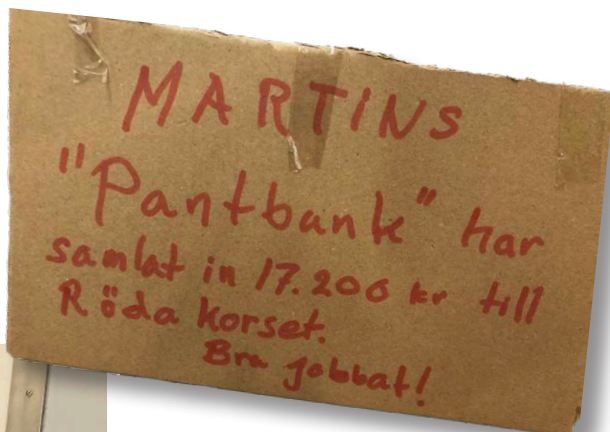 MARTINS
"Pantbank" har
samlat in 17.200 kr till
Röda korset.
Bra jobbat!